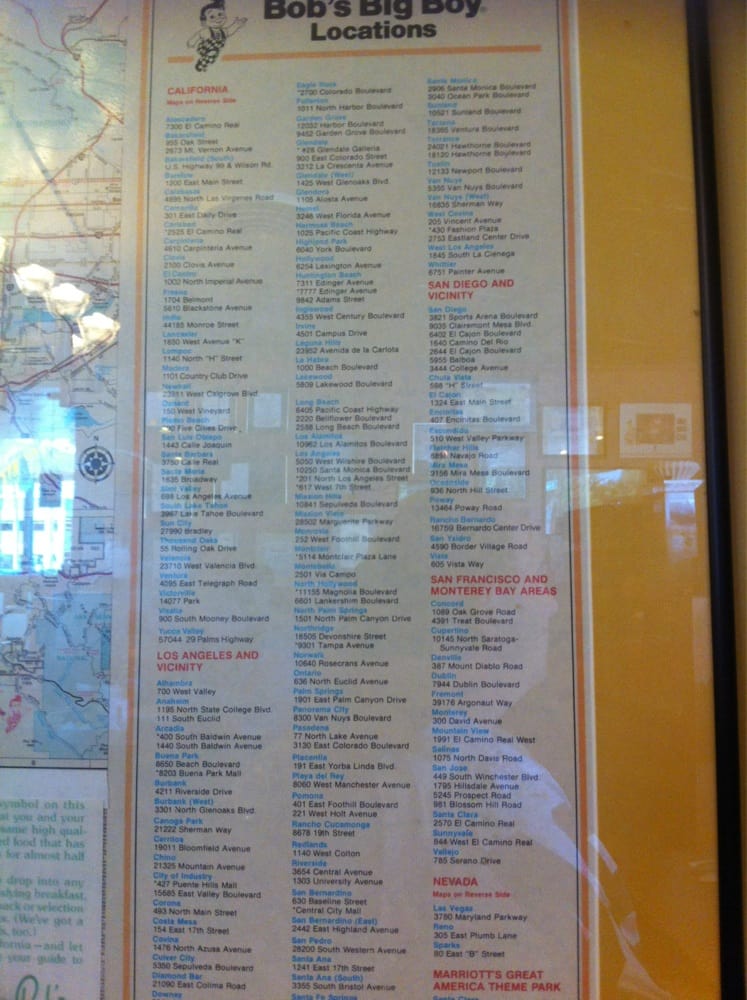 Bob's Big Boy®
Locations
CALIFORNIA
Maps on Reverse Side
Atascadero
7300 El Camino Real
Bakersfield
955 Oak Street
2673 Mt. Vernon Avenue
Bakersfield (South)
U.S. Highway 99 & Wilson Rd.
Barstow
1200 East Main Street
Calabasas
4895 North Las Virgenes Road
Camarillo
301 East Daily Drive
Carlsbad
*2525 El Camino Real
Carpinteria
4610 Carpinteria Avenue
Clovis
2100 Clovis Avenue
El Centro
1002 North Imperial Avenue
Fresno
1704 Belmont
5610 Blackstone Avenue
Indio
44185 Monroe Street
Lancaster
1650 West Avenue "K"
Lompoc
1140 North "H" Street
Madera
1101 Country Club Drive
Newhall
23811 West Calgrove Blvd.
Oxnard
150 West Vineyard
Pismo Beach
Five Cities Drive
San Luis Obispo
1443 Calle Joaquin
Santa Barbara
3750 Calle Real
Santa Maria
1635 Broadway
Simi Valley
698 Los Angeles Avenue
South Lake Tahoe
3967 Lake Tahoe Boulevard
Sun City
27990 Bradley
Thousand Oaks
55 Rolling Oak Drive
Valencia
23710 West Valencia Blvd.
Ventura
4095 East Telegraph Road
Victorville
14077 Park
Visalia
900 South Mooney Boulevard
Yucca Valley
57044 29 Palms Highway
LOS ANGELES AND
VICINITY
Alhambra
700 West Valley
Anaheim
1195 North State College Blvd.
111 South Euclid
Arcadia
*400 South Baldwin Avenue
1440 South Baldwin Avenue
Buena Park
8650 Beach Boulevard
*8203 Buena Park Mall
Burbank
4211 Riverside Drive
Burbank (West)
3301 North Glenoaks Blvd.
Canoga Park
21222 Sherman Way
Cerritos
19011 Bloomfield Avenue
Chino
21325 Mountain Avenue
City of Industry
*427 Puente Hills Mall
15685 East Valley Boulevard
Corona
493 North Main Street
Costa Mesa
154 East 17th Street
Covina
1476 North Azusa Avenue
Culver City
5350 Sepulveda Boulevard
Diamond Bar
21090 East Colima Road
Downey
Eagle Rock
*2700 Colorado Boulevard
Fullerton
1011 North Harbor Boulevard
Garden Grove
12032 Harbor Boulevard
9452 Garden Grove Boulevard
Glendale
*#28 Glendale Galleria
900 East Colorado Street
3212 La Crescenta Avenue
Glendale (West)
1425 West Glenoaks Blvd.
Glendora
1105 Alosta Avenue
Hemet
3246 West Florida Avenue
Hermosa Beach
1025 Pacific Coast Highway
Highland Park
6040 York Boulevard
Hollywood
6254 Lexington Avenue
Huntington Beach
7311 Edinger Avenue
*7777 Edinger Avenue
9842 Adams Street
Inglewood
4355 West Century Boulevard
Irvine
4501 Campus Drive
Laguna Hills
23952 Avenida de la Carlota
La Habra
1000 Beach Boulevard
Lakewood
5809 Lakewood Boulevard
Long Beach
6405 Pacific Coast Highway
2220 Bellflower Boulevard
2588 Long Beach Boulevard
Los Alamitos
10962 Los Alamitos Boulevard
Los Angeles
5050 West Wilshire Boulevard
10250 Santa Monica Boulevard
*201 North Los Angeles Street
*617 West 7th Street
Mission Hills
10841 Sepulveda Boulevard
Mission Viejo
28502 Marguerite Parkway
Monrovia
252 West Foothill Boulevard
Montclair
*5114 Montclair Plaza Lane
Montebello
2501 Via Campo
North Hollywood
*11155 Magnolia Boulevard
6601 Lankershim Boulevard
North Palm Springs
1501 North Palm Canyon Drive
Northridge
16505 Devonshire Street
*9301 Tampa Avenue
Norwalk
10640 Rosecrans Avenue
Ontario
636 North Euclid Avenue
Palm Springs
1901 East Palm Canyon Drive
Panorama City
8300 Van Nuys Boulevard
Pasadena
77 North Lake Avenue
3130 East Colorado Boulevard
Placentia
191 East Yorba Linda Blvd.
Playa del Rey
8060 West Manchester Avenue
Pomona
401 East Foothill Boulevard
221 West Holt Avenue
Rancho Cucamonga
8678 19th Street
Redlands
1140 West Colton
Riverside
3654 Central Avenue
1303 University Avenue
San Bernardino
630 Baseline Street
*Central City Mall
San Bernardino (East)
2442 East Highland Avenue
San Pedro
28200 South Western Avenue
Santa Ana
1241 East 17th Street
Santa Ana (South)
3355 South Bristol Avenue
Santa Fe Springs
Santa Monica
2906 Santa Monica Boulevard
3040 Ocean Park Boulevard
Sunland
10521 Sunland Boulevard
Tarzana
18365 Ventura Boulevard
Torrance
24021 Hawthorne Boulevard
18120 Hawthorne Boulevard
Tustin
12133 Newport Boulevard
Van Nuys
5355 Van Nuys Boulevard
Van Nuys (West)
16835 Sherman Way
West Covina
205 Vincent Avenue
*430 Fashion Plaza
2753 Eastland Center Drive
West Los Angeles
1845 South La Cienega
Whittier
6751 Painter Avenue
SAN DIEGO AND
VICINITY
San Diego
3821 Sports Arena Boulevard
9035 Clairemont Mesa Blvd.
6402 El Cajon Boulevard
1640 Camino Del Rio
2644 El Cajon Boulevard
5955 Balboa
3444 College Avenue
Chula Vista
598 "H" Street
El Cajon
1324 East Main Street
Encinitas
407 Encinitas Boulevard
Escondido
510 West Valley Parkway
Fletcher Hills
8891 Navajo Road
Mira Mesa
3156 Mira Mesa Boulevard
Oceanside
936 North Hill Street
Poway
13464 Poway Road
Rancho Bernardo
16759 Bernardo Center Drive
San Ysidro
4590 Border Village Road
Vista
605 Vista Way
SAN FRANCISCO AND
MONTEREY BAY AREAS
Concord
1089 Oak Grove Road
4391 Treat Boulevard
Cupertino
10145 North Saratoga-
Sunnyvale Road
Danville
387 Mount Diablo Road
Dublin
7944 Dublin Boulevard
Fremont
39176 Argonaut Way
Monterey
300 David Avenue
Mountain View
1991 El Camino Real West
Salinas
1075 North Davis Road
San Jose
449 South Winchester Blvd.
1795 Hillsdale Avenue
5245 Prospect Road
961 Blossom Hill Road
Santa Clara
2570 El Camino Real
Sunnyvale
844 West El Camino Real
Vallejo
785 Serano Drive
NEVADA
Maps on Reverse Side
Las Vegas
3780 Maryland Parkway
Reno
305 East Plumb Lane
Sparks
90 East "B" Street
MARRIOTT'S GREAT
AMERICA THEME PARK
Santa Clara
symbol on this
at you and your
same high qual-
ed food that has
for almost half
drop into any
breakfast,
or selection
(We've got a
too.)
fornia—and let
your guide to